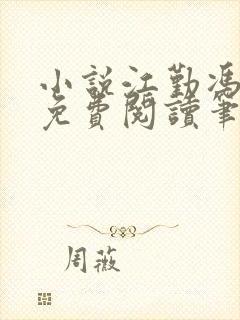 小説江勤馮
免費閱讀筆
周薇